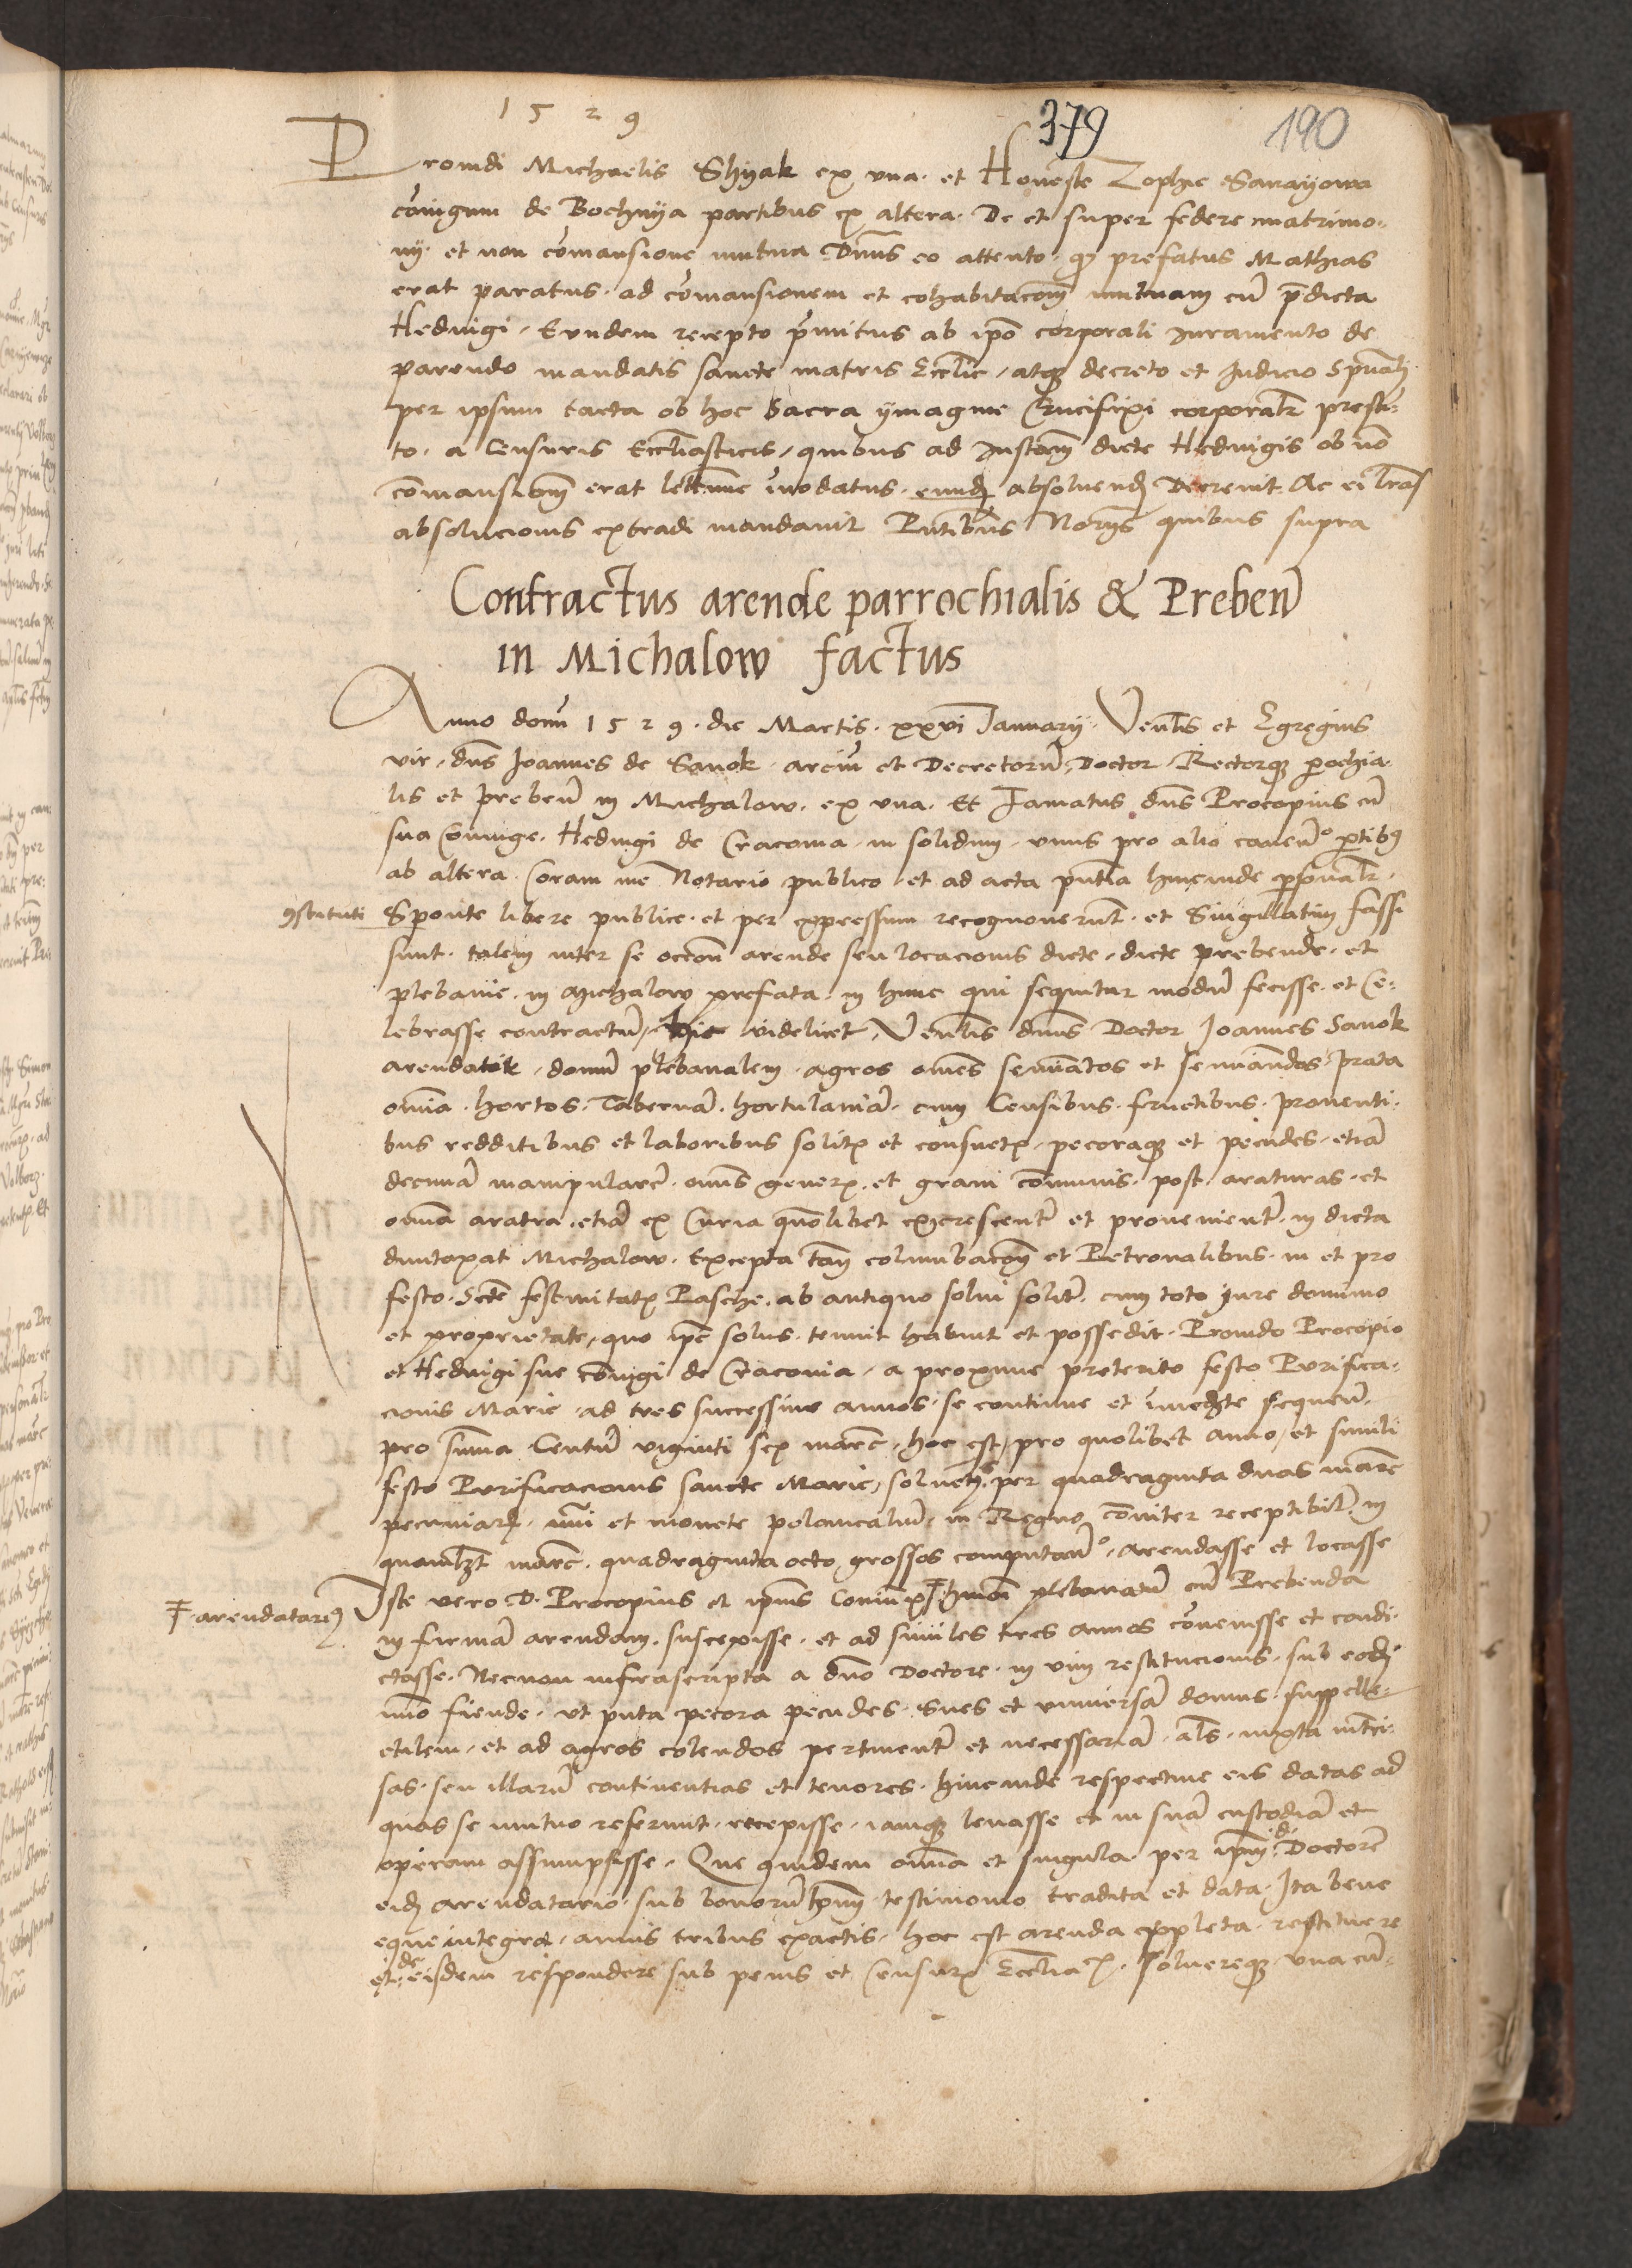 1529
379
190
Prouidi Michaelis Shyak ex vna. et Honeste Zophie Sanayowa
coniugum de Bochnya partibus ex altera. De et super federe matrimo-
nij. et non comansione mutua Dnus eo attento. qz prefatus Mathias
erat paratus. ad comansionem et cohabitacom mutuam cu predicta
Heduigi. Eundem recepto primitus ab ipso corporali iuramento de
parendo mandatis sancte matris Ecclie, atqz decreto et Iudicio Spuali
per ipsum tacta ob hoc Sacra ymagine Crucifixi corporalr presti-
to. a Censuris Eccliasticis, quibus ad Instam dicte Heduigis ob no
comansiom erat innodatus. eund absoluend Decreuit. Ac ei lras
absolucionis extradi mandauit Pntibus Norijs quibus supra
Contractus arende parrochialis & Preben
in Michalow factus
Anno domi 1529. die Martis. xxvi Ianuarij. Venlis et Egregius
vir, dns Ioannes de Sanok. arciu et Decretoru Doctor Rectorqz parochia-
lis et preben in Michalow. ex vna. Et Famatus dns Procopius cu
sua Coniuge. Heduigi de Cracouia. in solidum. vnus pro alio cauen partibus
ab altera. Coram me Notario publico et ad acta pntia hincinde personalr.
9stituti Sponte libere publice. et per expressum recognouerunt. et Singillatim fassi
sunt. talem inter se arende seu locacionis dicte, dicte prebende. et
plebanie. in Michalow prefata. in hunc qui sequitur modu fecisse. et Ce-
lebrasse contractu, hic videlicet, Venlis dnus Doctor Ioannes Sanok
domu plebanalem. agros omes seminatos et seminandos, prata
omia. hortos. Taberna. hortulania. cum Censibus. fructibus. prouenti-
bus redditibus et laboribus solitis et consuetis, pecoraqz et pecudes, etia
decima manipulare. omis generis. et grani communis. post araturas. et
omia aratra. etia ex Curia excrescente et prouenient. in dicta
duntaxat Michalow. Excepta tam columbacom et Petronalibus. in et pro
festo. Scte festiuitatis Pasche. ab antiquo solui solit. cum toto iure dominio
et proprietate, quo ipse solus. tenuit habuit et possedit. Prouido Procopio
et Heduigi sue coniugi de Cracouia, a proxime preterito festo Purifica-
cionis Marie. ad tres successiue annos. se continue et immediate sequen.
pro suma Centu viginti sex marc, hoc est, pro quolibet anno, et simili
festo Purificacionis sancte Marie, soluen per quadraginta duas marc
pecuniar. numi et monete polonicaliu. in Regno comiter receptibil. in
quamlzt marc. quadraginta octo grossos computan. arendasse et locasse
Iste vero D. Procopius et ipius Coniunx ‡ hmoi plebanatu cu Prebenda
‡ arendatares
in firma arendam. suscepisse. et ad similes tres annos conuenisse et condi-
ctasse. Necnon infrascripta a dno Doctore. in vim restitucionis. sub eodem
mo fiende. vt puta pecora pecudes. Sues et vniuersa domus. suppelle-
ctilem. et ad agros colendos pertinente et necessaria. als. iuxta intci-
sas. seu illaru continentias et tenores. hincinde respectiue eis datas ad
quas se mutuo referunt. recepisse. iamqz leuasse et in sua custodia et
operam assumpsisse. Que quidem omia et singula per ipm d. Doctore
eidem arendatario. sub bonoru homn testimonio tradita et data. Ita bene
eque integra. annis tribus exactis. hoc est arenda expleta. restituere
et de eisdem respondere sub penis et Censuris Ecclia. Soluereqz. vna cu